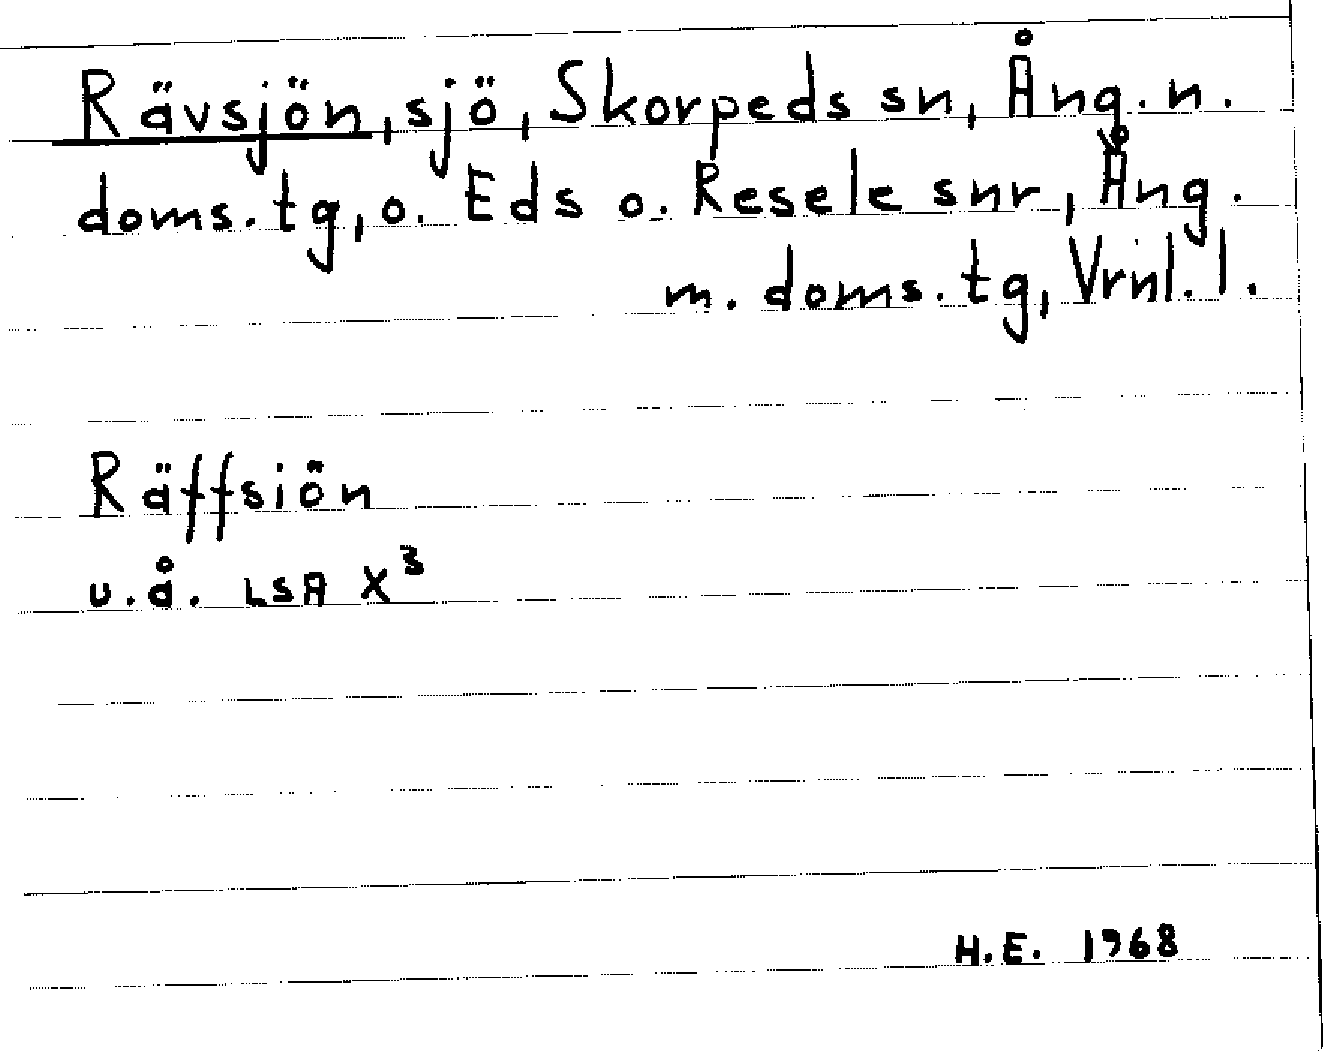 Rävsjön, sjö, Skorpeds sn, Ång. n.
doms. tg, o. Eds o. Resele snr, Ång.
m. doms. tg, Vrnl. l.
Räffsiön
u.å. LSA X³
H.E. 1968